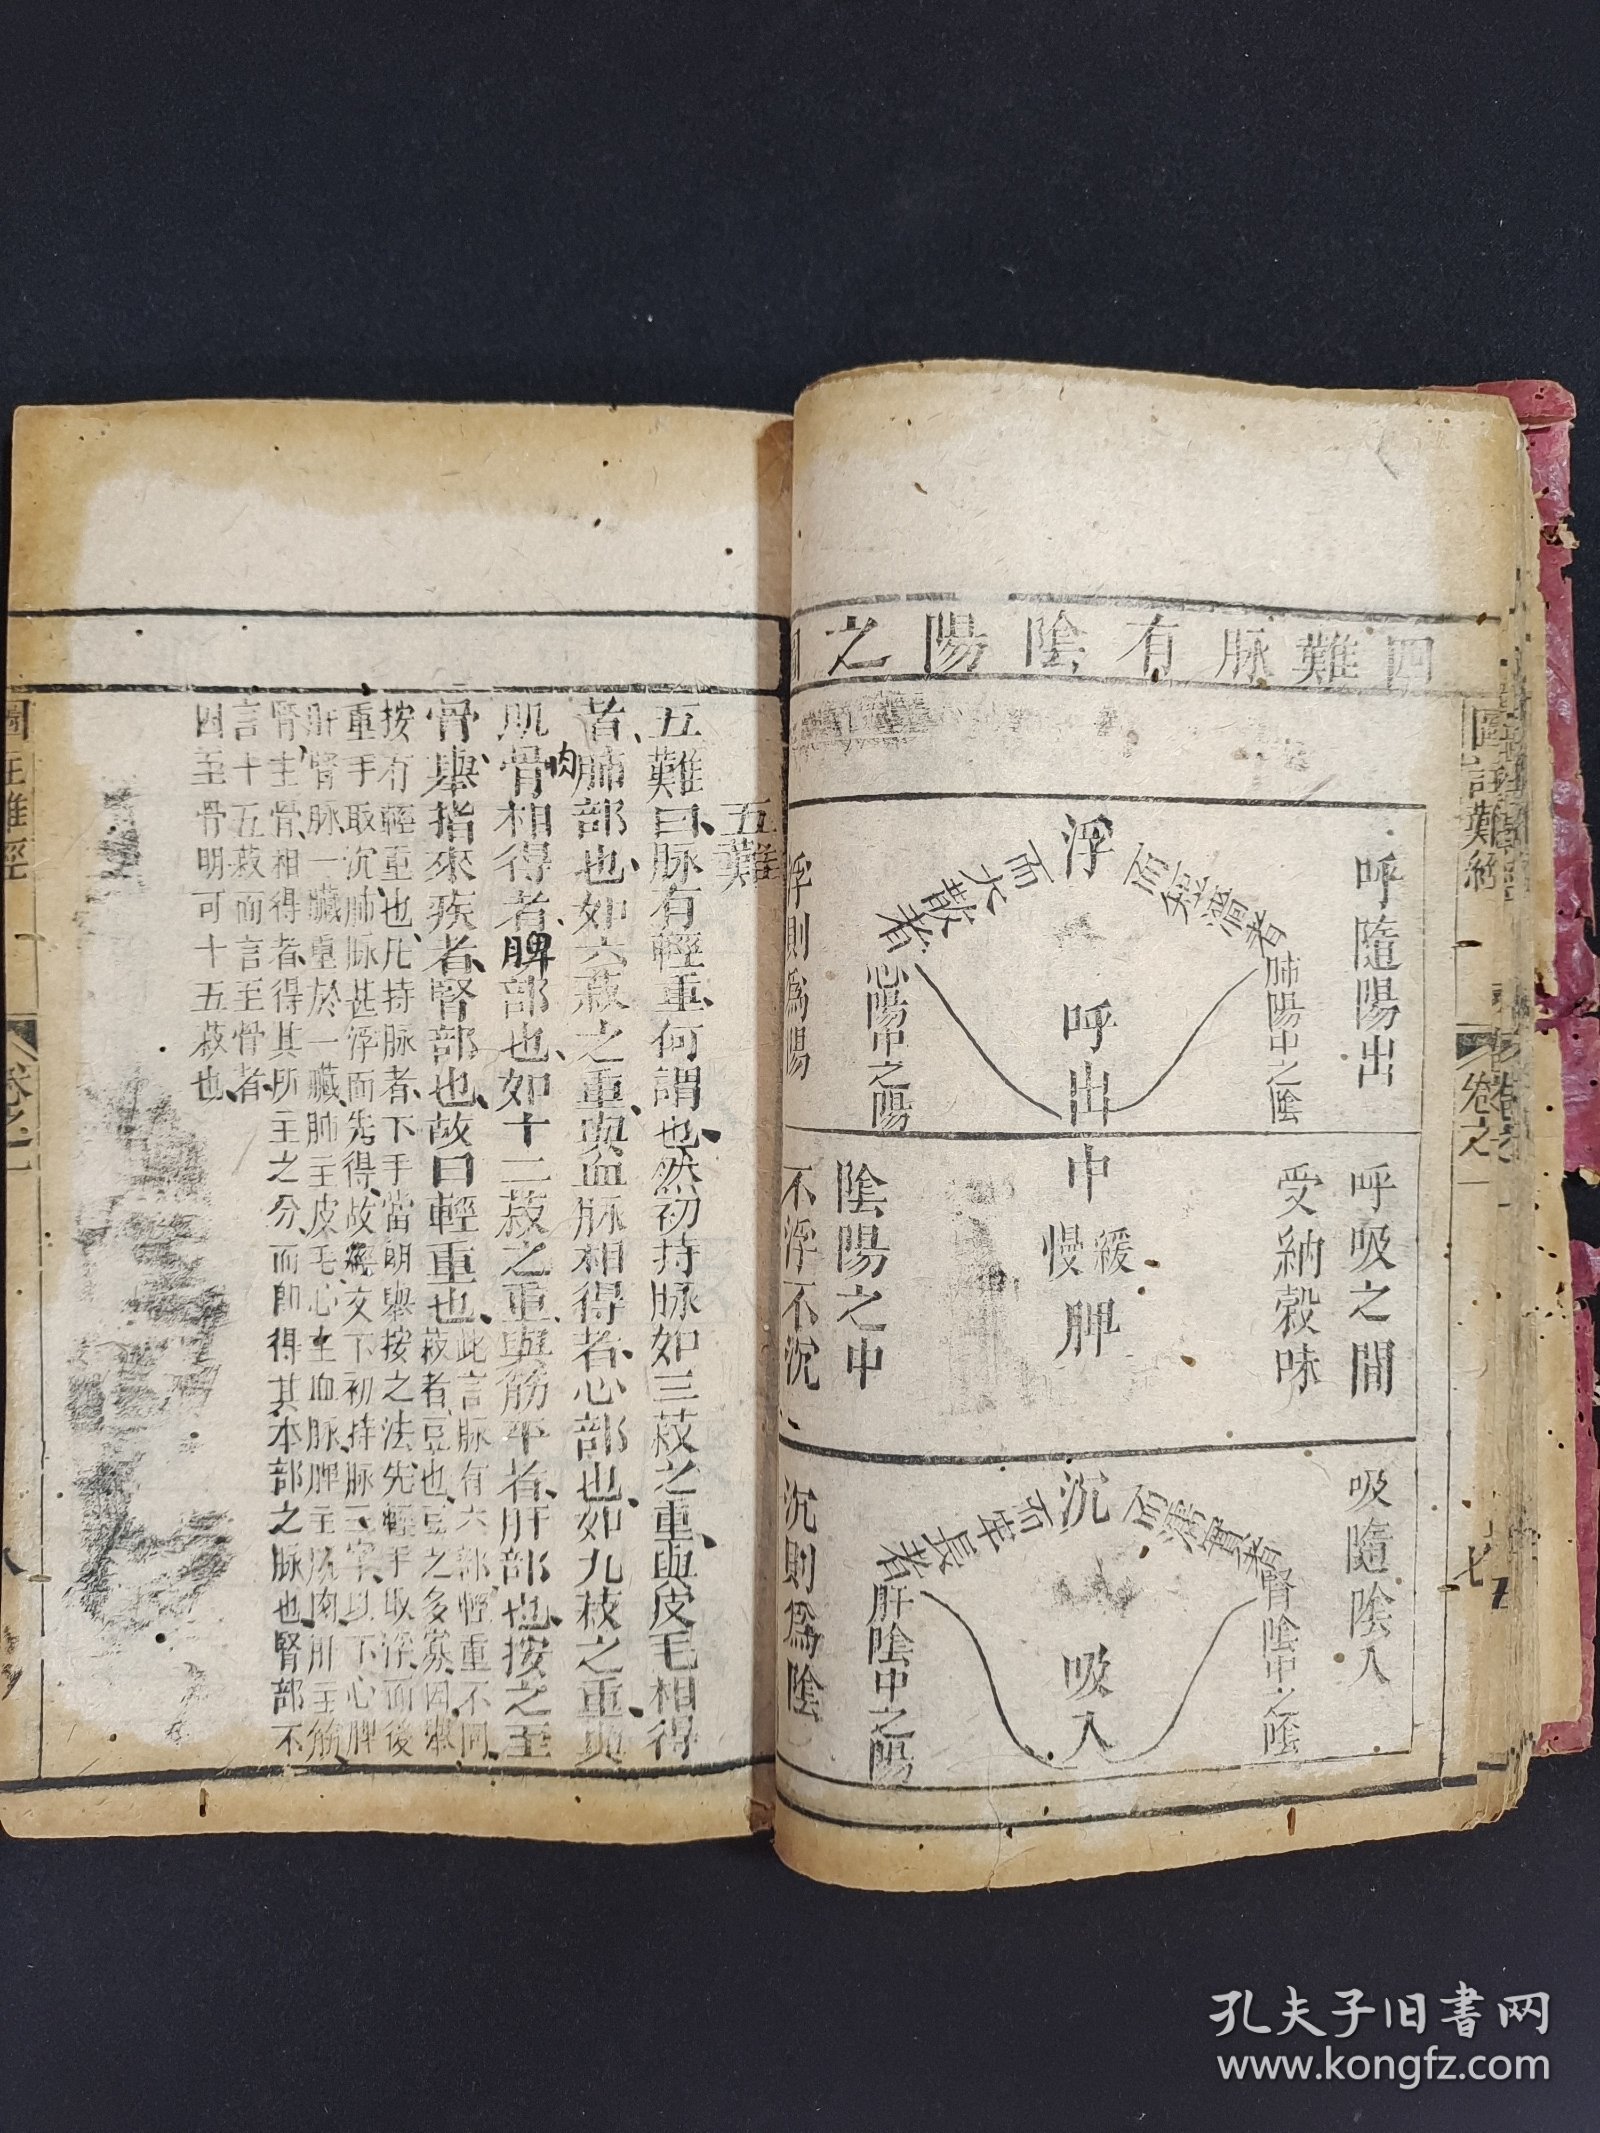 四難脈有陰陽之圖
呼隨陽出
浮
而短濇者
肺陽中之陰
而大散者
心陽中之陽
呼出
浮則爲陽
呼吸之間
受納穀味
中
緩慢
脾
陰陽之中
不浮不沉
吸隨陰入
沉
而濡實者
腎陰中之陰
而牢長者
肝陰中之陽
吸入
沉則爲陰
圖註難經
卷之一
七
五難
五難曰脉有輕重何謂也然初持脉如三菽之重與皮毛相得
者肺部也如六菽之重與血脉相得者心部也如九菽之重與
肌肉
骨相得者脾部也如十二菽之重與筋平者肝部也按之至
骨舉指來疾者腎部也故曰輕重也
此言脉有六部輕重不同
菽者豆也豆之多寡因舉
按有輕重也凡持脉者下手當明舉按之法先輕手取浮而後
重手取沉肺脉甚浮而先得故病交下初持脉三字以下心脾
肝腎脉一臟重於一臟肺主皮毛心主血脉脾主肌肉肝主筋
腎主骨相得者得其所主之分而即得其本部之脉也腎部不
言十五菽而言至骨者
四至骨明可十五菽也
圖註難經
卷之一
八
孔夫子旧书网
www.kongfz.com